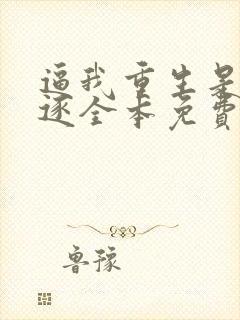 逼我重生是
逐全本免费
鲁豫